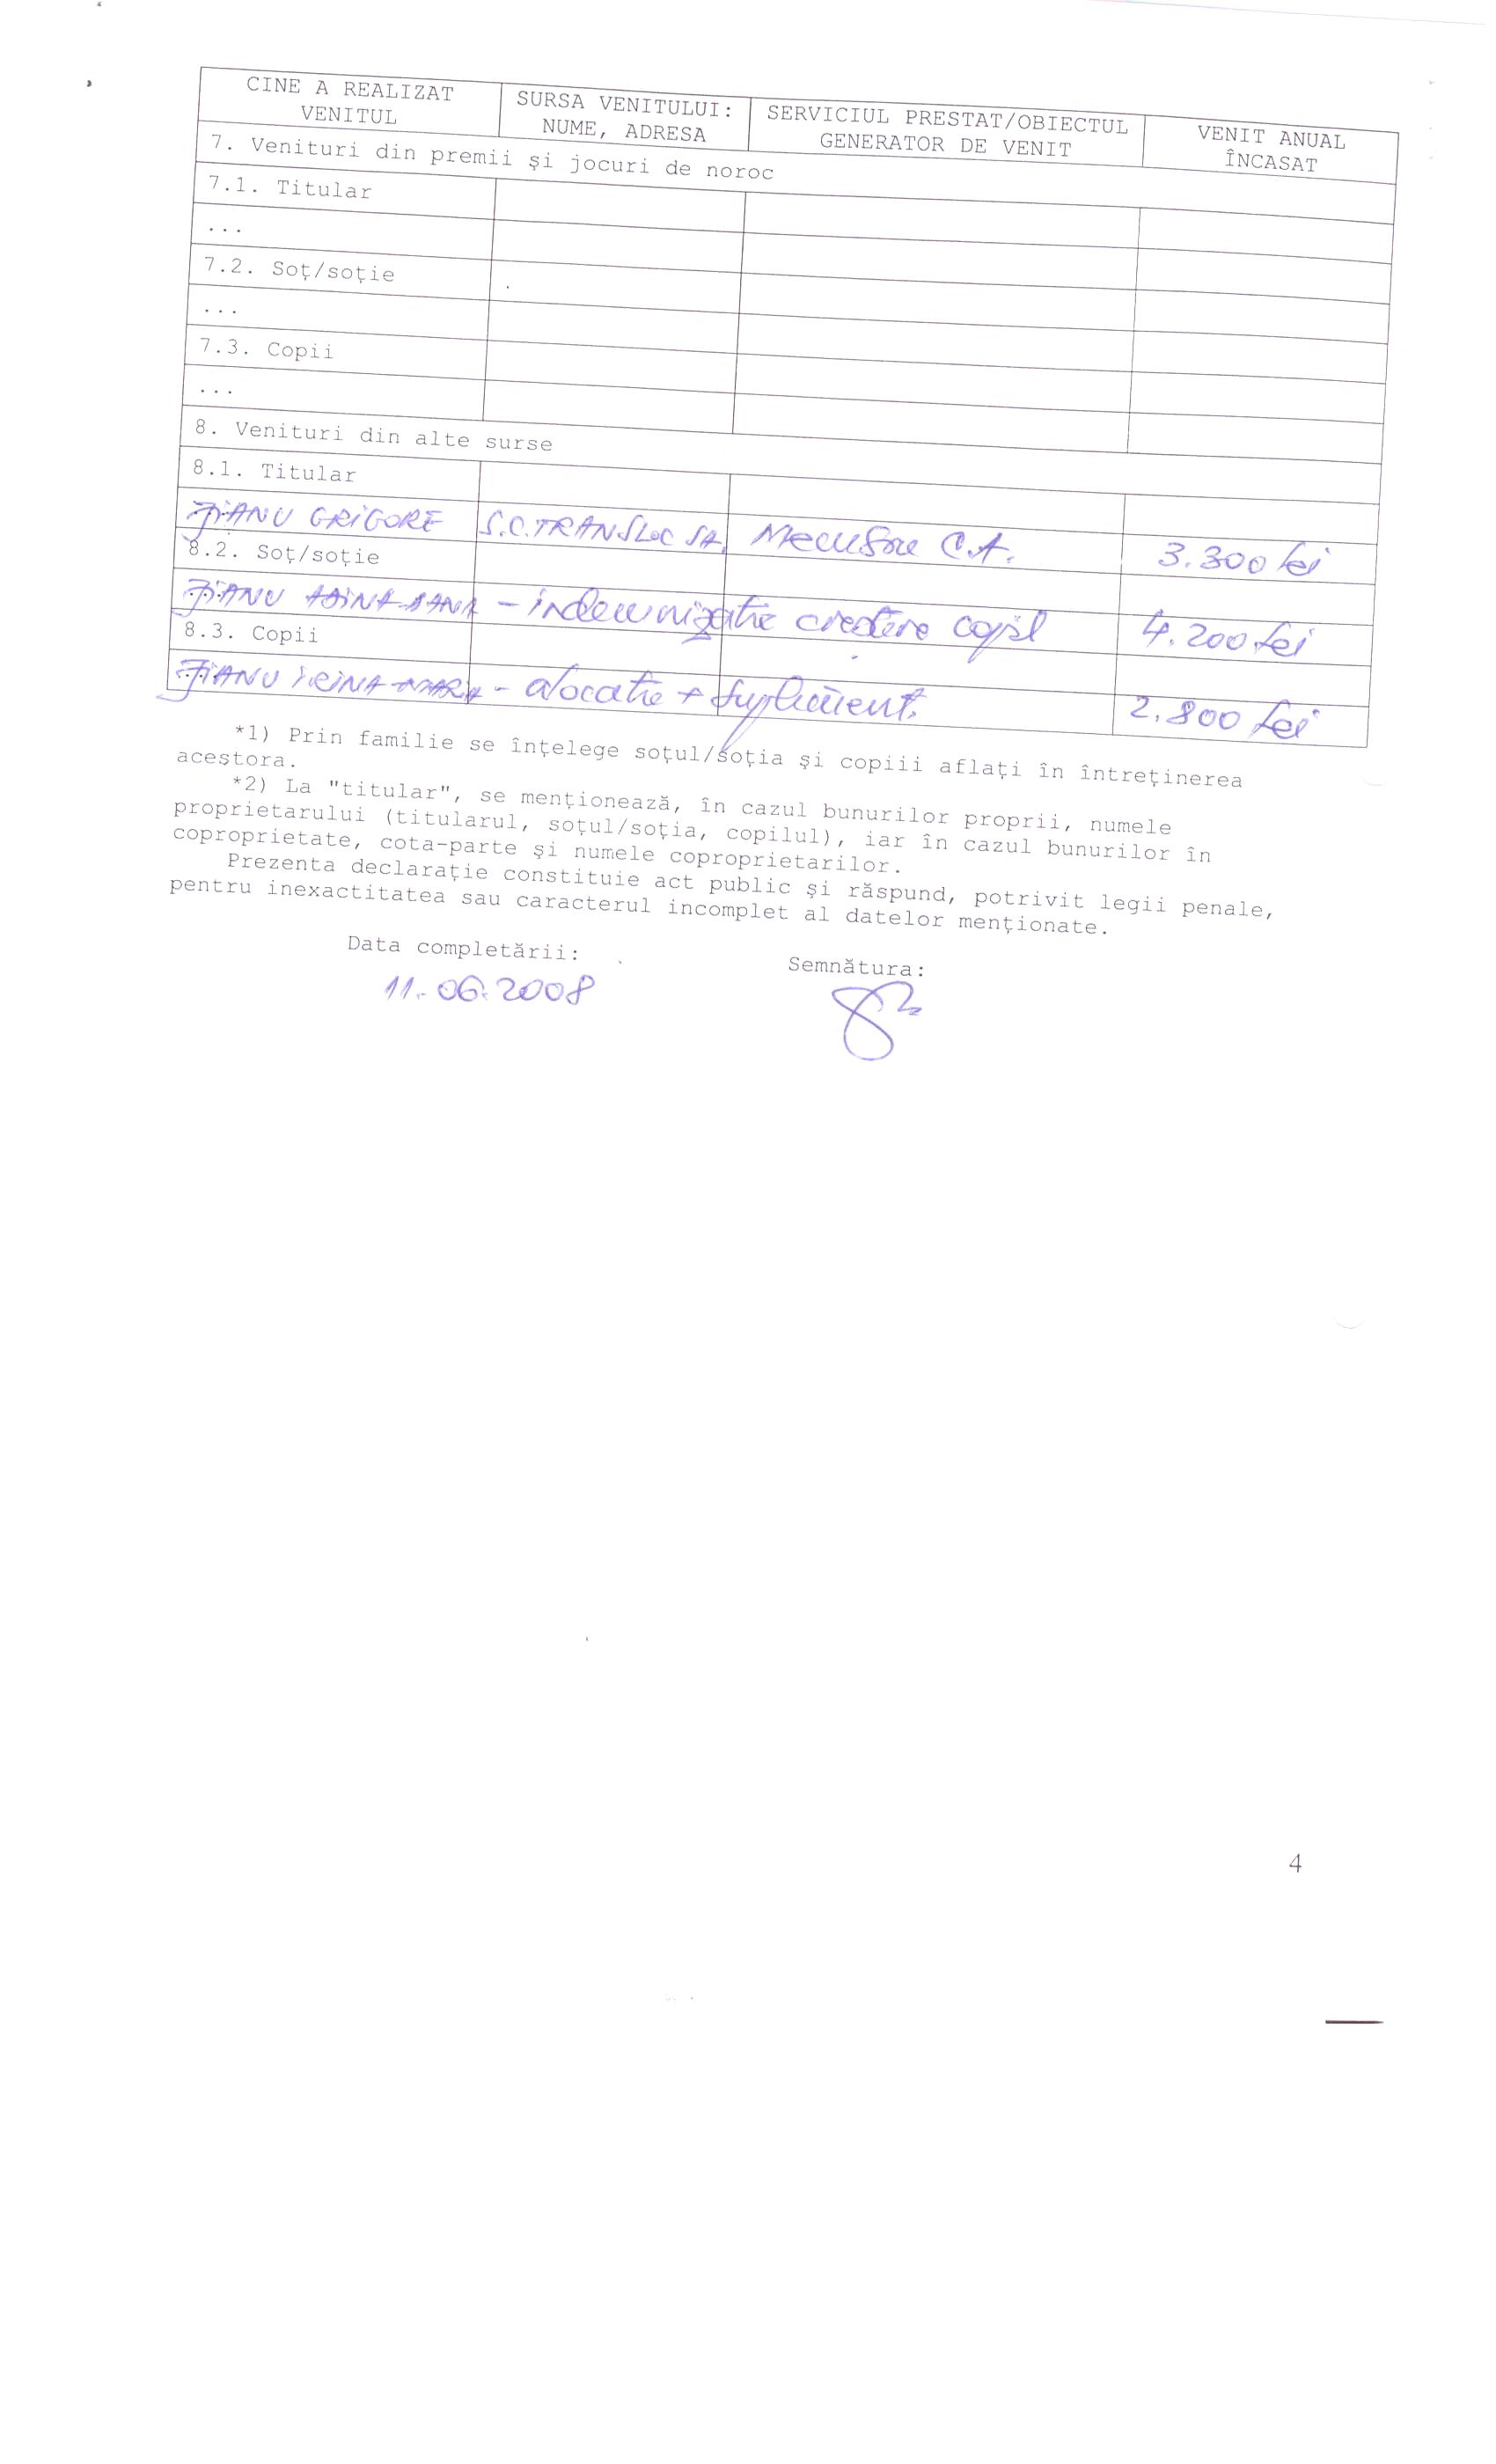 CINE A REALIZAT VENITUL
SURSA VENITULUI: NUME, ADRESA
SERVICIUL PRESTAT/OBIECTUL GENERATOR DE VENIT
VENIT ANUAL ÎNCASAT
7. Venituri din premii şi jocuri de noroc
7.1. Titular
...
7.2. Soţ/soţie
...
7.3. Copii
...
8. Venituri din alte surse
8.1. Titular
JIANU GRIGORE S.C. TRANSLOC SA. Membru C.A. 3.300 lei
8.2. Soţ/soţie
JIANU DANA - indemnizatie crestere copil 4.200 lei
8.3. Copii
JIANU IRINA-MARIA - alocatie + supliment. 2.800 lei
*1) Prin familie se înţelege soţul/soţia şi copiii aflaţi în întreţinerea
acestora.
*2) La "titular", se menţionează, în cazul bunurilor proprii, numele
proprietarului (titularul, soţul/soţia, copilul), iar în cazul bunurilor în
coproprietate, cota-parte şi numele coproprietarilor.
Prezenta declaraţie constituie act public şi răspund, potrivit legii penale,
pentru inexactitatea sau caracterul incomplet al datelor menţionate.
Data completării: Semnătura:
11.06.2008
4